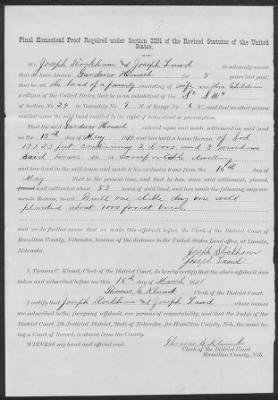 Final Homestead Proof Required under Section 2291 of the Revised Statutes of the United
States.
We, Joseph Stockham and Joseph Land do solemnly swear
that we have known Gardner Hensel for 8 years last past;
that he is the head of a family consisting of wife and Children
a citizen of the United States, that he is an inhabitant of the S W
of Section No 24 in Township No. 9 N. of Range No 6 W., and that no other person
resided upon the said land entitled to
That the said Gardner Hensel entered upon and made settlement on said land
on the 15th day of May, and has built a house thereon of Sod
feet containing 2 doors and 3 windows
Said house is a comfortable dwelling
and has lived in the said house and made it his exclusive home from the 15th day of
May to the present time, and that he has, since said settlement, plowed,
and cultivated about 55 acres of said land, and has made the following improve-
ments thereon, to wit: Built one stable dug one well
planted about 1000 forest trees.
and do further swear that we make this affidavit before the Clerk of the District Court of
Hamilton County, Nebraska, because of the distance to the United States Land office, at Lincoln,
Nebraska.
Joseph Stockham
Joseph Land
I, Thomas C. Klumb, Clerk of the District Court, do hereby certify that the above affidavit was
taken and subscribed before me this 15th day of March
Thomas C. Klumb, Clerk of the District Court.
I certify that Joseph Stockham and Joseph Land whose names
are subscribed to the foregoing affidavit, are persons of respectability, and that the Judge of the
District Court, Judicial District, State of Nebraska, for Hamilton County, Neb., the same be-
ing a Court of Record, is absent from the County.
WITNESS my hand and official seal. Thomas C. Klumb
Clerk of the District Court
Hamilton County, Neb.